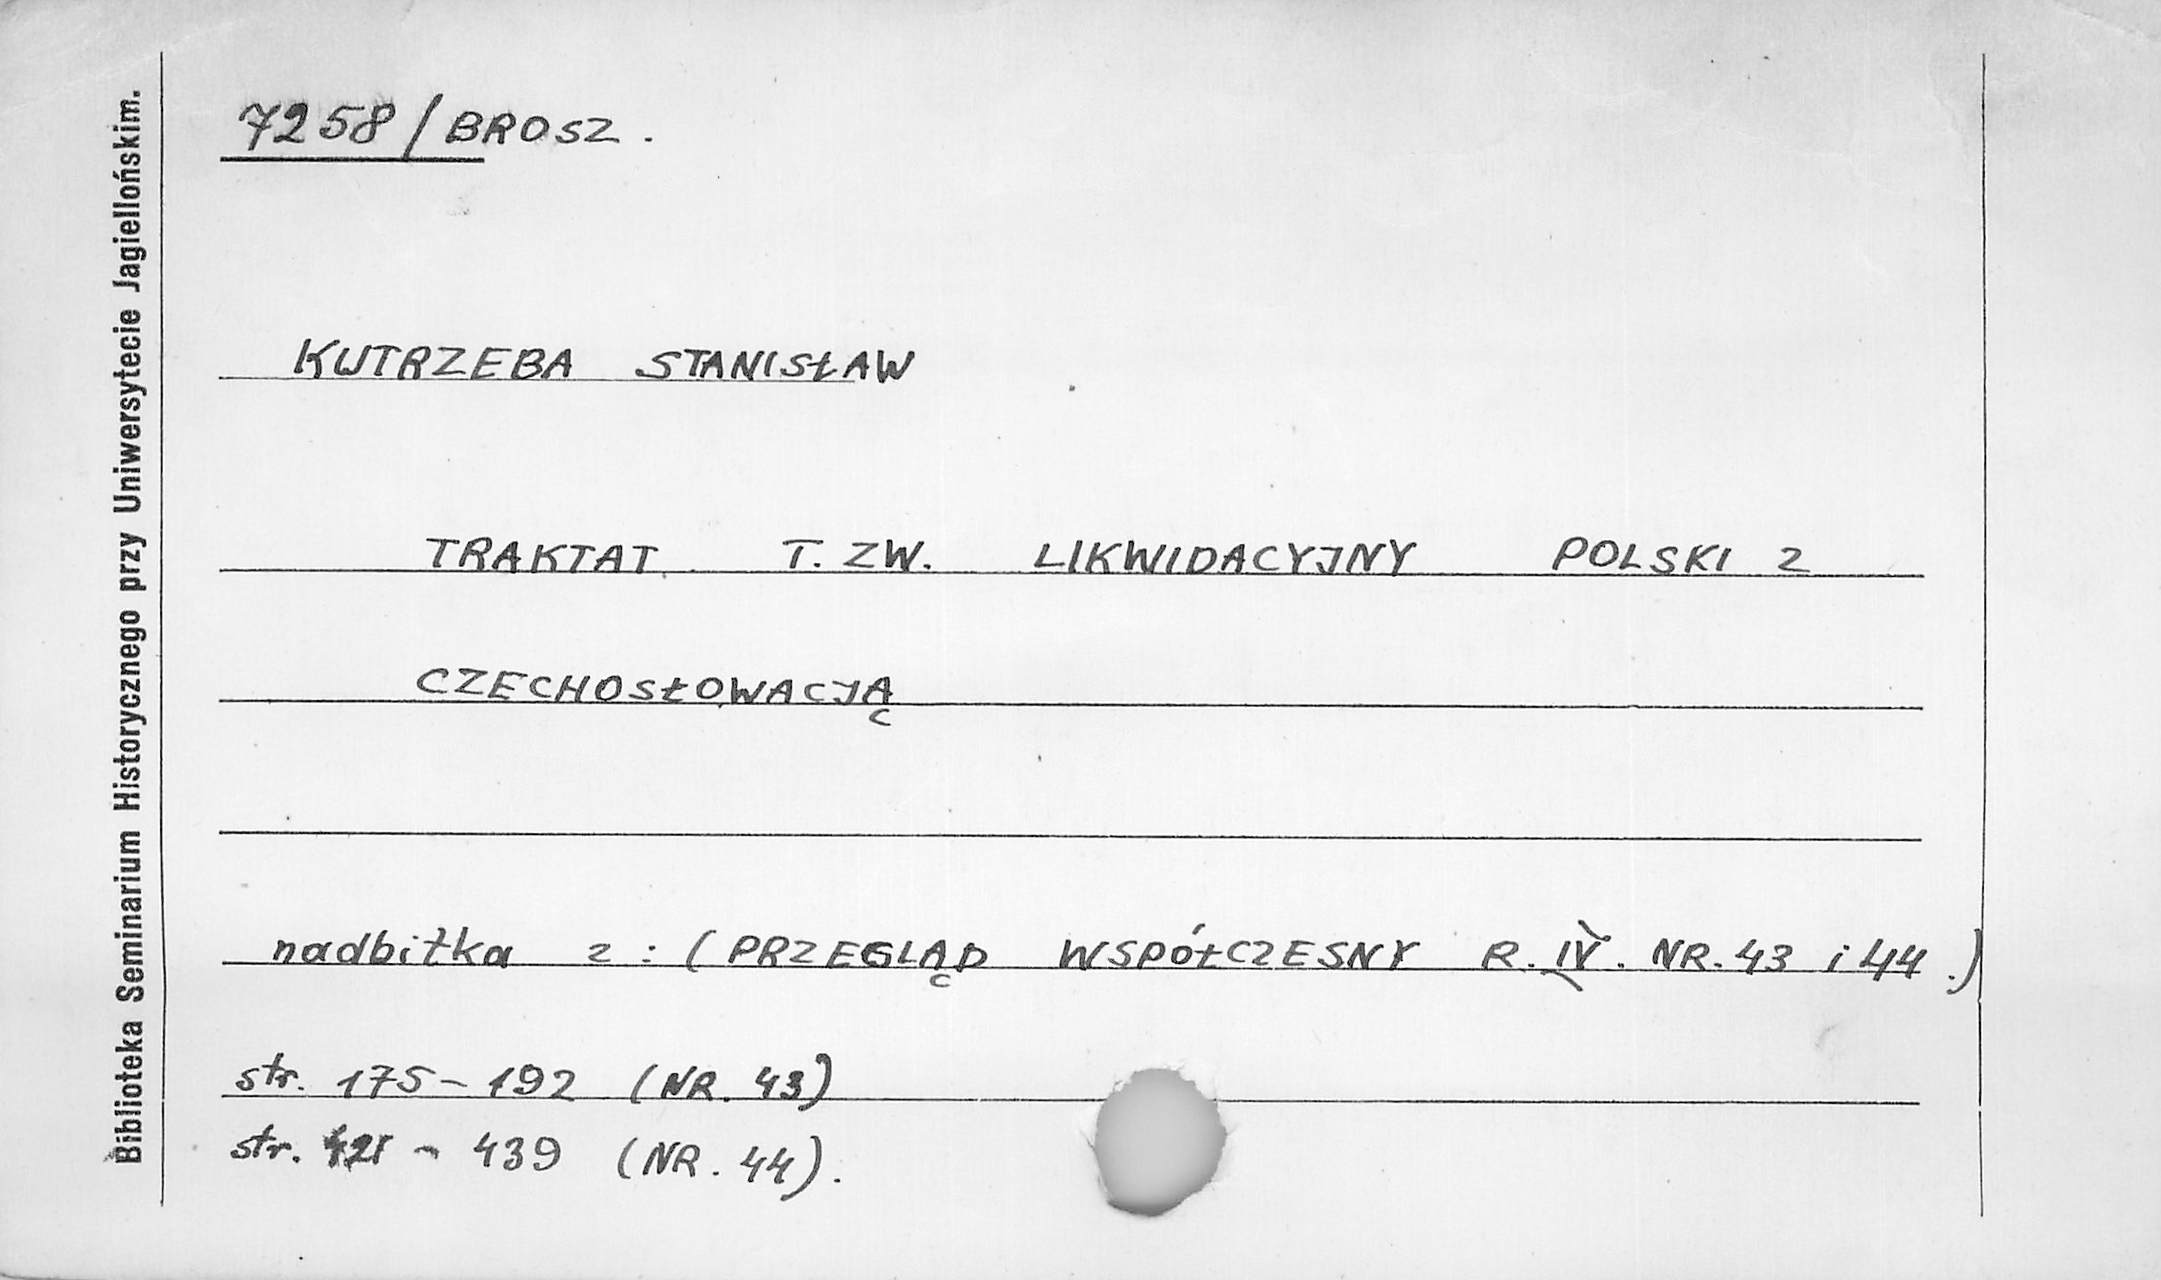 7258/BROSZ.
KUTRZEBA STANISŁAW
TRAKTAT T. ZW. LIKWIDACYJNY POLSKI Z
CZECHOSŁOWACJĄ
nadbitka z: (PRZEGLĄD WSPÓŁCZESNY R. IV. NR. 43 i 44.)
str. 175-192 (NR. 43)
str. 421 - 439 (NR. 44).
Biblioteka Seminarium Historycznego przy Uniwersytecie Jagiellońskim.